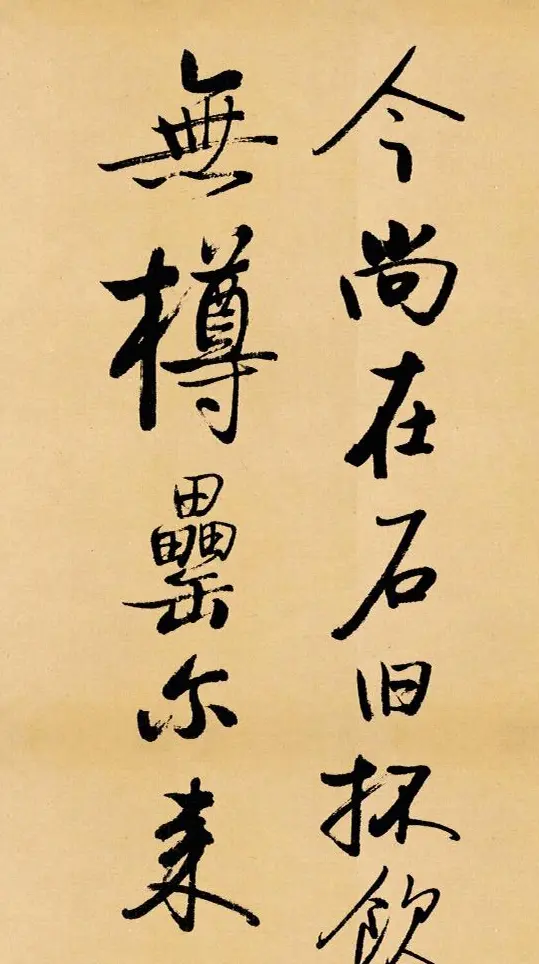 今尚在石臼抔飲
無樽罍尔来